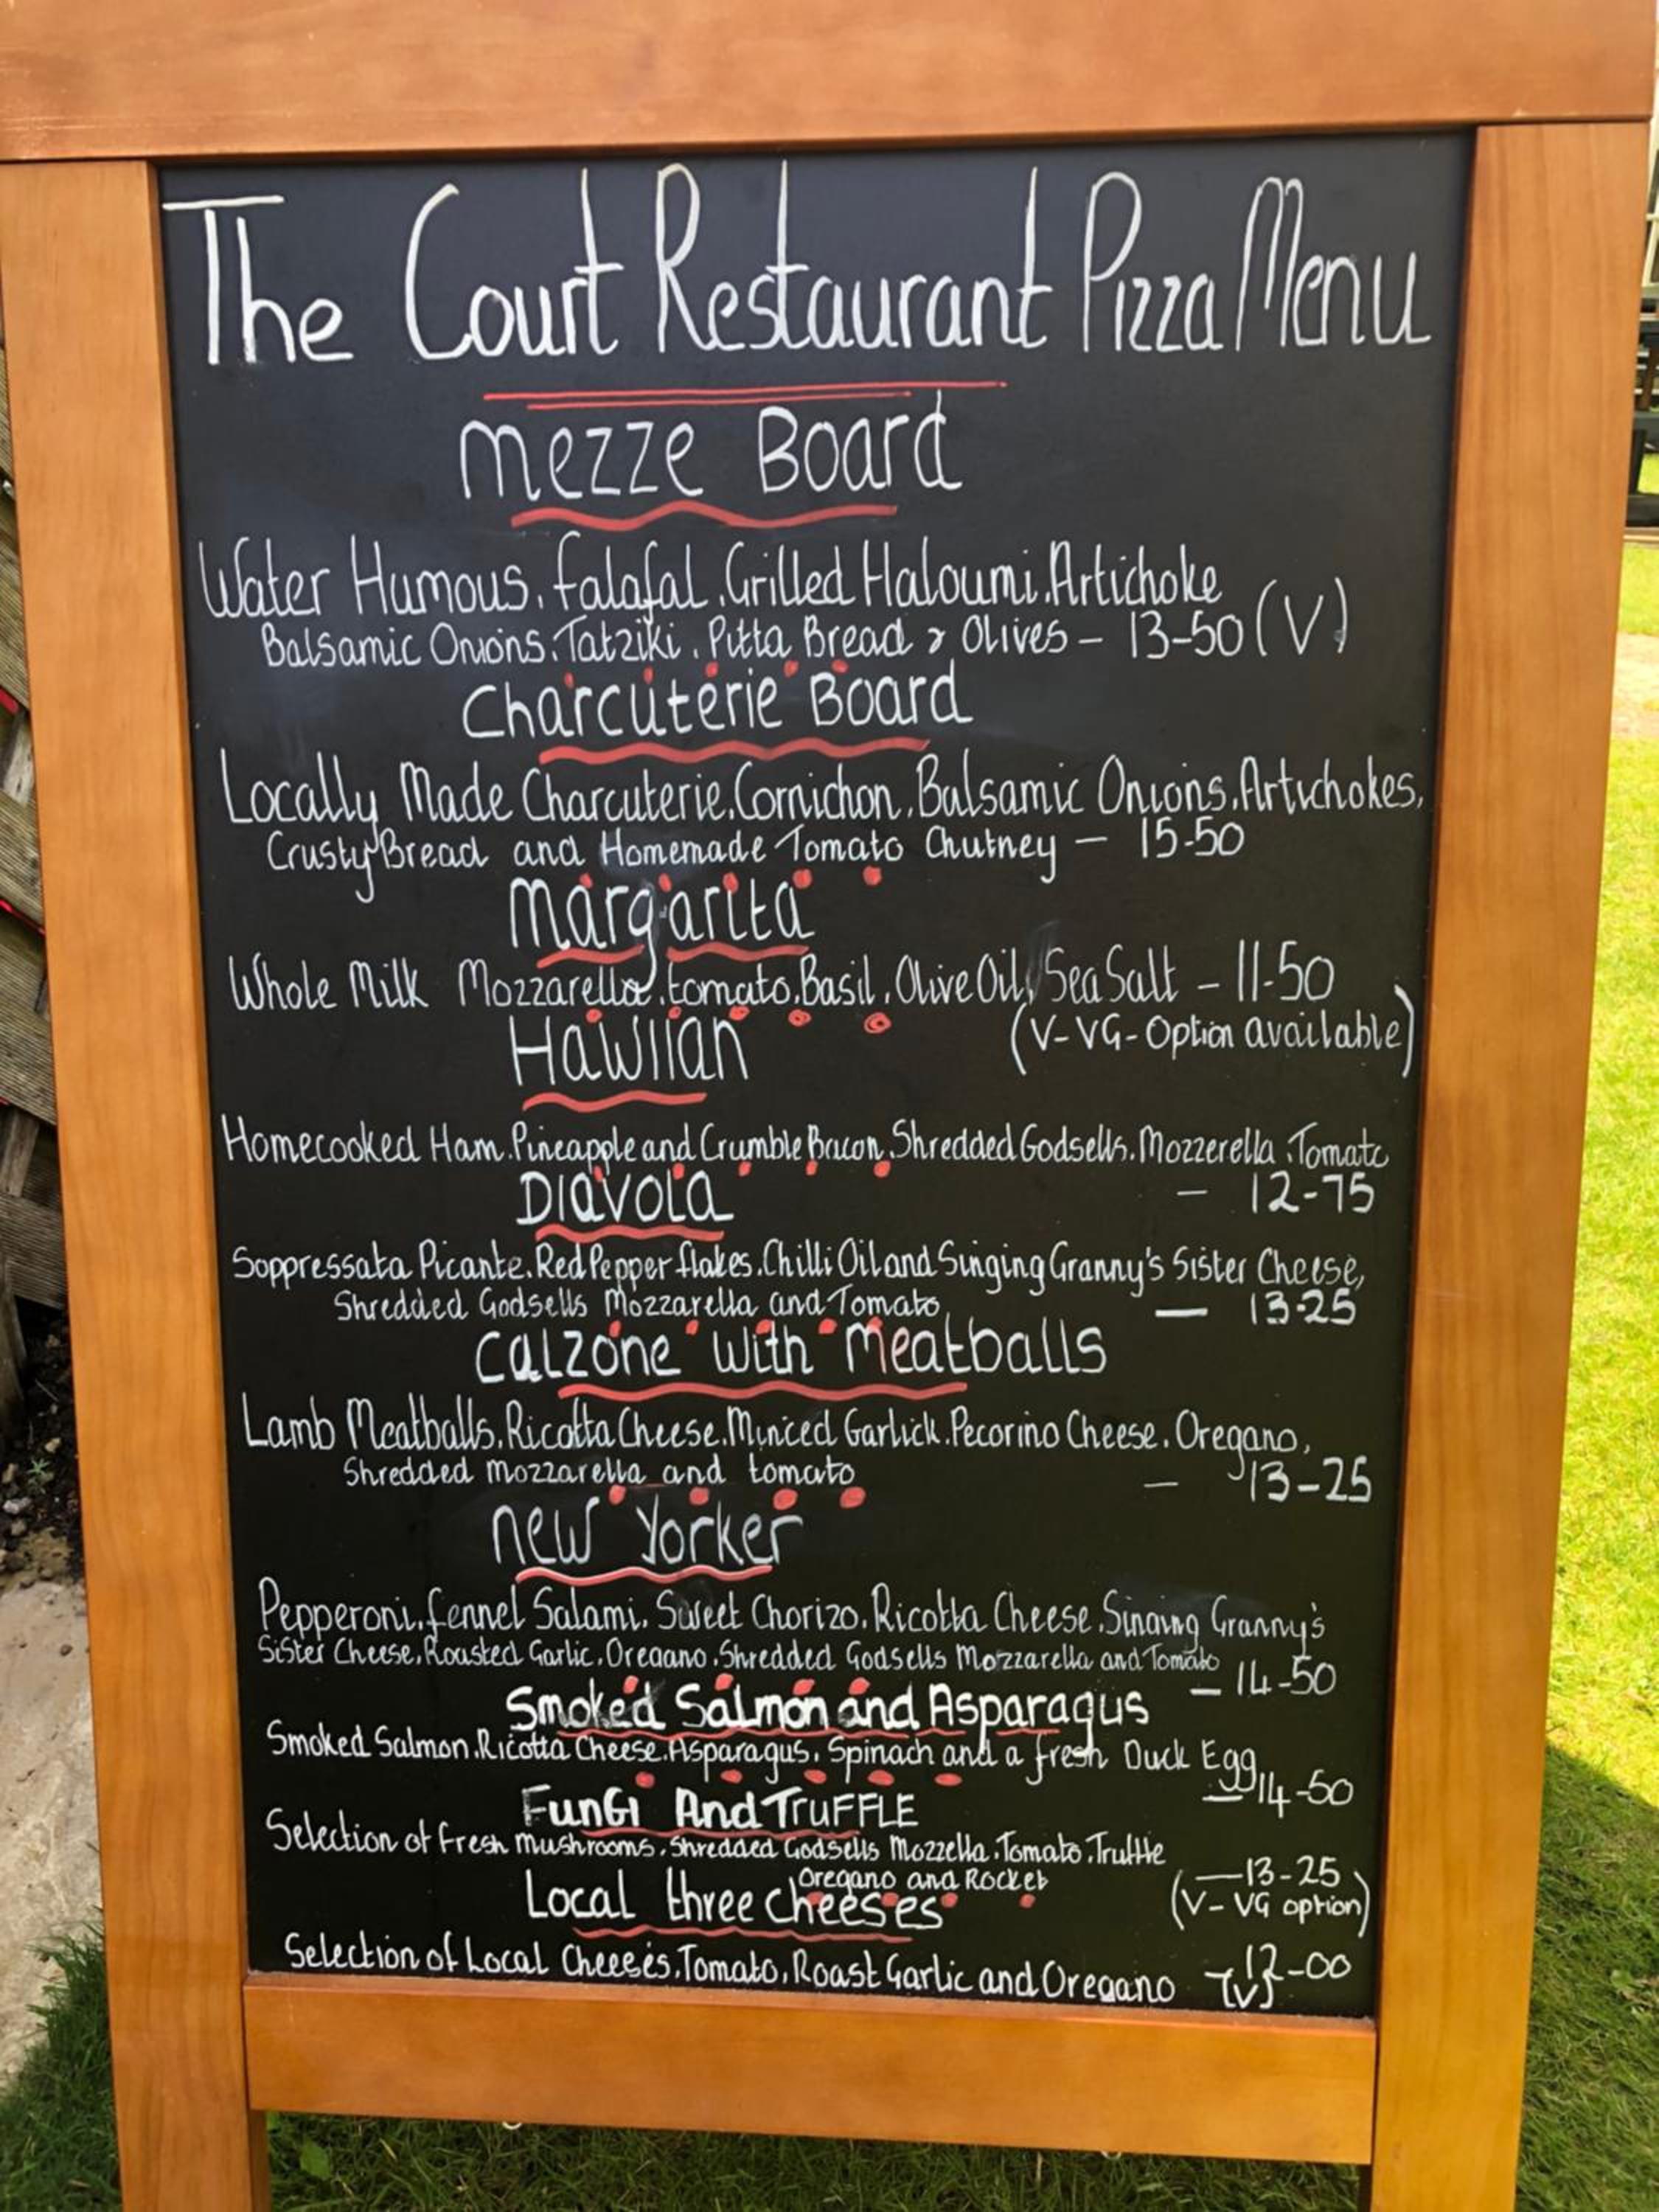 The Court Restaurant Pizza Menu
Mezze Board
Water Humous, Falafal, Grilled Haloumi, Artichoke
Balsamic Onions, Tatziki, Pitta Bread & Olives – 13-50 (V)
Charcuterie Board
Locally Made Charcuterie, Cornichon, Balsamic Onions, Artichokes,
Crusty Bread and Homemade Tomato Chutney – 15-50
Margarita
Whole Milk Mozzarella, tomato, Basil, Olive Oil, Sea Salt – 11-50
(V-VG-Option available)
Hawiian
Homecooked Ham, Pineapple and Crumble Bacon, Shredded Godsells, Mozzerella, Tomato
– 12-75
Diavola
Soppressata Picante, Red Pepper flakes, Chilli Oil and Singing Granny's Sister Cheese,
Shredded Godsells Mozzarella and Tomato — 13-25
Calzone with Meatballs
Lamb Meatballs, Ricotta Cheese, Minced Garlick, Pecorino Cheese, Oregano,
Shredded mozzarella and tomato – 13-25
New Yorker
Pepperoni, fennel Salami, Sweet Chorizo, Ricotta Cheese, Singing Granny's
Sister Cheese, Roasted Garlic, Oregano, Shredded Godsells Mozzarella and Tomato – 14-50
Smoked Salmon and Asparagus
Smoked Salmon, Ricotta Cheese, Asparagus, Spinach and a fresh Duck Egg – 14-50
Fungi And Truffle
Selection of Fresh Mushrooms, Shredded Godsells Mozzella, Tomato, Truffle
Oregano and Rocket — 13-25
(V-VG option)
Local three cheeses
Selection of Local Cheeses, Tomato, Roast Garlic and Oregano – 12-00
(V)